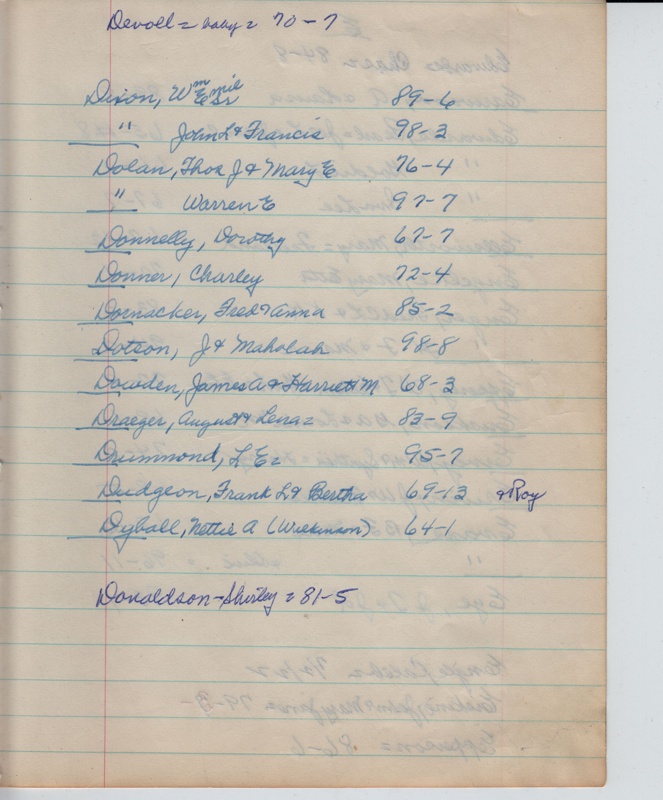 Devoll = baby = 70-7
Dixon, Wm Emil Sr 89-6
" John L & Francis 98-3
Dolan, Thos J & Mary E 76-4
" Warren E 97-7
Donnelly, Dorothy 67-7
Donner, Charley 72-4
Dornacker, Fred & Anna 85-2
Dotson, J & Mahalah 98-8
Dowden, James A & Harriett M 68-3
Draeger, August & Lena = 83-9
Drummond, L E = 95-7
Dudgeon, Frank L & Bertha 69-13 & Roy
Dyball, Nettie A (Wilkinson) 64-1
Donaldson - Shirley = 81-5